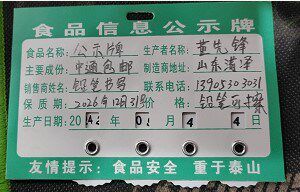 食品信息公示牌
食品名称: 公示牌 生产者名称: 黄先锋
主要成份: 中通包邮 制造商地址: 山东菏泽
销售商姓名: 铅笔书写 联系电话: 13905303031
保质期: 2026年12月31号 价格: 铅笔可擦
生产日期: 20 年 0 月 4 日
友情提示: 食品安全 重于泰山